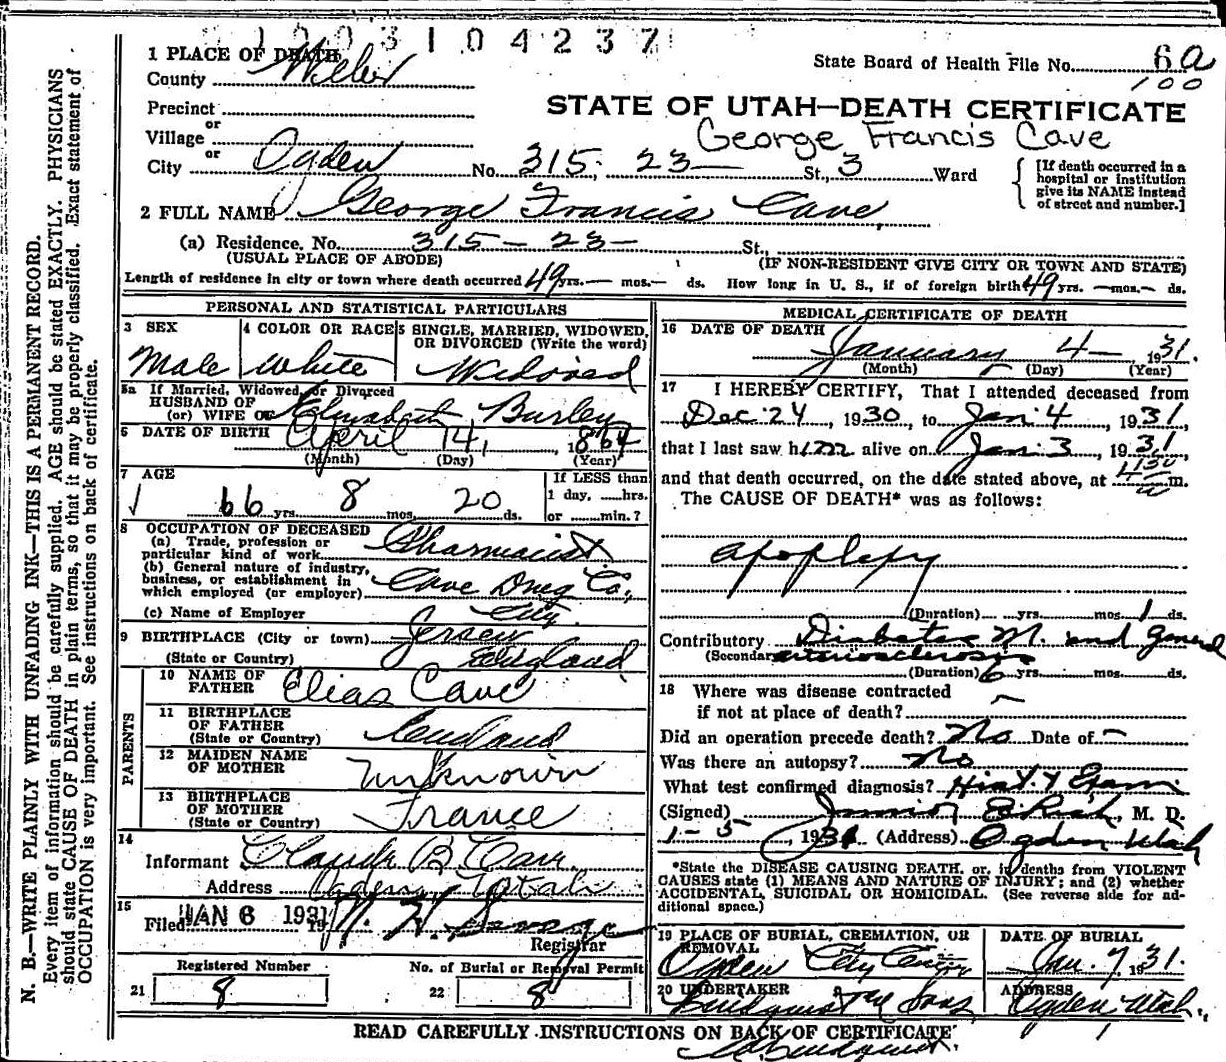 1003104237
1 PLACE OF DEATH
County Weber
State Board of Health File No. 6a
100
Precinct
or
Village
or
City Ogden No. 315, 23 — St., 3 Ward
STATE OF UTAH—DEATH CERTIFICATE
George Francis Cave
[If death occurred in a
hospital or institution
give its NAME instead
of street and number.]
2 FULL NAME George Francis Cave,
(a) Residence. No. 315 — 23 — St.
(USUAL PLACE OF ABODE) (IF NON-RESIDENT GIVE CITY OR TOWN AND STATE)
Length of residence in city or town where death occurred 49 yrs. — mos. — ds. How long in U. S., if of foreign birth 49 yrs. — mos. — ds.
PERSONAL AND STATISTICAL PARTICULARS
3 SEX
Male
4 COLOR OR RACE
White
5 SINGLE, MARRIED, WIDOWED,
OR DIVORCED (Write the word)
Widowed
5a If Married, Widowed or Divorced
HUSBAND OF
(or) WIFE OF Elizabeth Burley
6 DATE OF BIRTH April 14, 1864
(Month) (Day) (Year)
7 AGE
66 yrs. 8 mos. 20 ds.
If LESS than
1 day, ......hrs.
or ......min.?
8 OCCUPATION OF DECEASED
(a) Trade, profession or
particular kind of work Pharmacist
(b) General nature of industry,
business, or establishment in
which employed (or employer) Cave Drug Co,
(c) Name of Employer City
9 BIRTHPLACE (City or town) Jersey
(State or Country) England
PARENTS
10 NAME OF
FATHER Elias Cave
11 BIRTHPLACE
OF FATHER
(State or Country) England
12 MAIDEN NAME
OF MOTHER Unknown
13 BIRTHPLACE
OF MOTHER
(State or Country) France
14
Informant Claude B
Address
15
Filed JAN 6 1931 19
Registrar
Registered Number
21 8
No. of Burial or Removal Permit
22 8
MEDICAL CERTIFICATE OF DEATH
16 DATE OF DEATH
January 4 — 1931.
(Month) (Day) (Year)
17 I HEREBY CERTIFY, That I attended deceased from
Dec. 24, 1930, to Jan 4, 1931,
that I last saw him alive on Jan. 3, 1931,
and that death occurred, on the date stated above, at 4 m.
The CAUSE OF DEATH* was as follows:
apoplexy
(Duration) yrs. mos. 1 ds.
Contributory Diabetes M. and General
(Secondary) arteriosclerosis
(Duration) 6 yrs. mos. ds.
18 Where was disease contracted
if not at place of death? —
Did an operation precede death? No Date of —
Was there an autopsy? No
What test confirmed diagnosis? Hist. & Exam
(Signed) Junior E Rich, M. D.
1 - 5 -, 1931 (Address) Ogden Utah
*State the DISEASE CAUSING DEATH, or, in deaths from VIOLENT
CAUSES state (1) MEANS AND NATURE OF INJURY; and (2) whether
ACCIDENTAL, SUICIDAL OR HOMICIDAL. (See reverse side for ad-
ditional space.)
19 PLACE OF BURIAL, CREMATION, OR
REMOVAL
Ogden City
DATE OF BURIAL
Jan. 7, 1931.
20 UNDERTAKER
Lindquist & Sons
ADDRESS
Ogden, Utah.
READ CAREFULLY INSTRUCTIONS ON BACK OF CERTIFICATE
Lindquist.
N. B.—WRITE PLAINLY WITH UNFADING INK—THIS IS A PERMANENT RECORD.
Every item of information should be carefully supplied. AGE should be stated EXACTLY. PHYSICIANS
should state CAUSE OF DEATH in plain terms, so that it may be properly classified. Exact statement of
OCCUPATION is very important. See instructions on back of certificate.